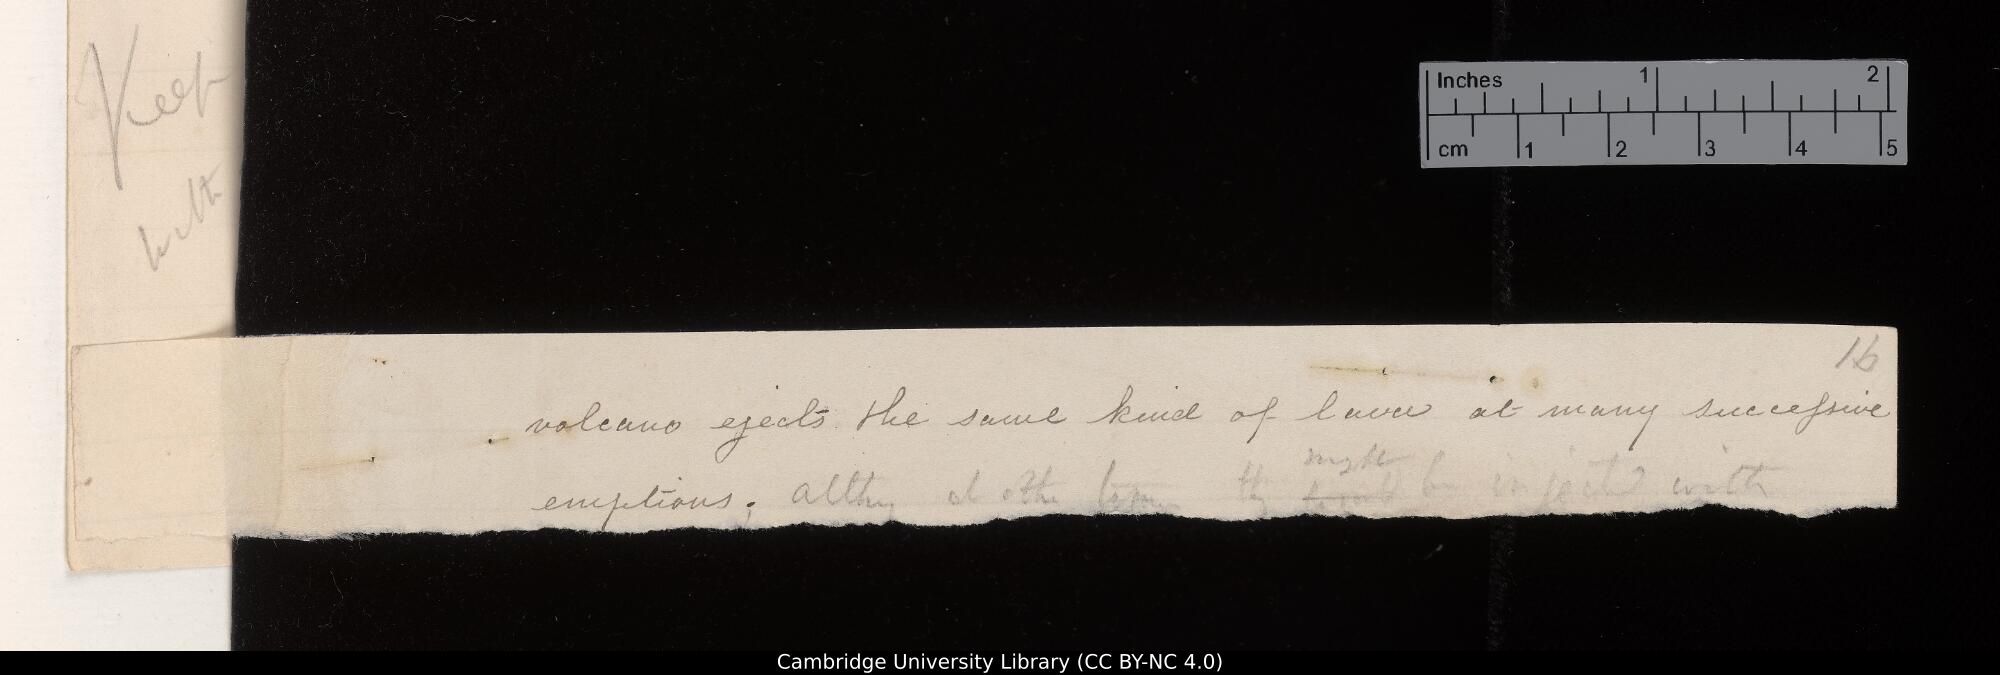 Keep
with
Inches 1 2
cm 1 2 3 4 5
16
volcano ejects the same kind of lava at many successive
might
eruptions; altho at other times they be injected with
Cambridge University Library (CC BY-NC 4.0)